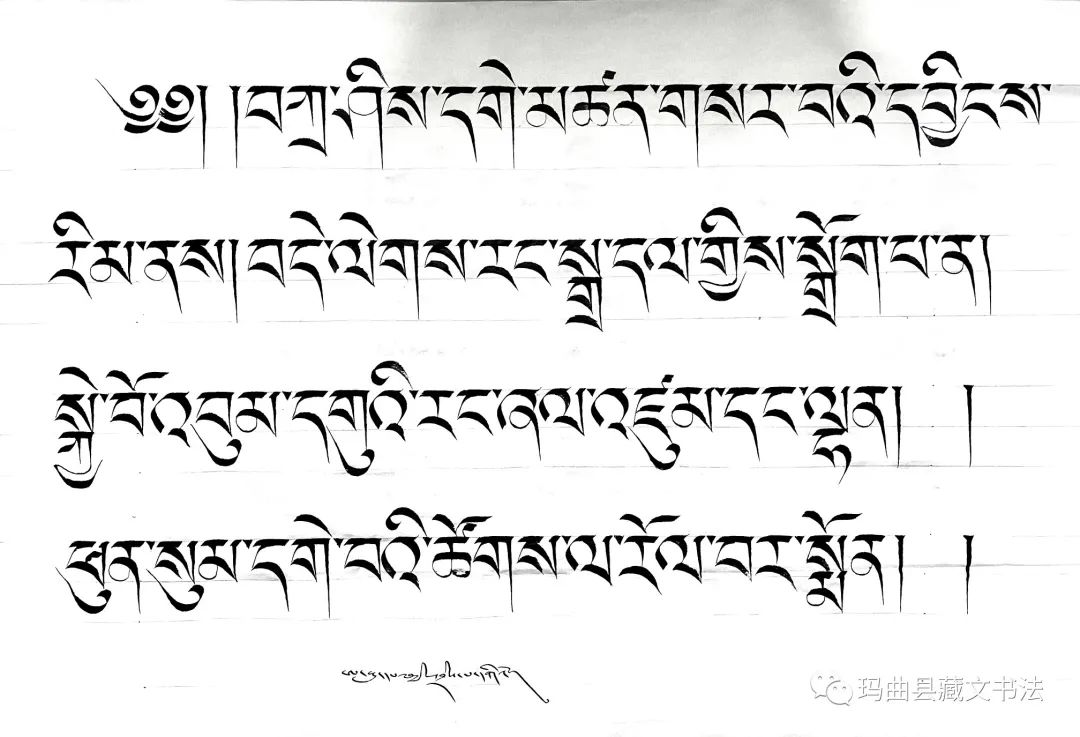 ༄༅། །བཀྲ་ཤིས་དགེ་མཚར་གསར་བའི་དབྱིངས་
རིམ་ནས། བདེ་ལེགས་རང་སྒྲ་དལ་གྱིས་སྒྲོག་པ་ན།
སྐྱེ་བོ་འབུམ་དགུའི་རང་ཞལ་འཛུམ་དང་ལྡན། །
ཕུན་སུམ་དགེ་བའི་ཚོགས་ལ་རོལ་བར་སྨོན། །
玛曲县藏文书法